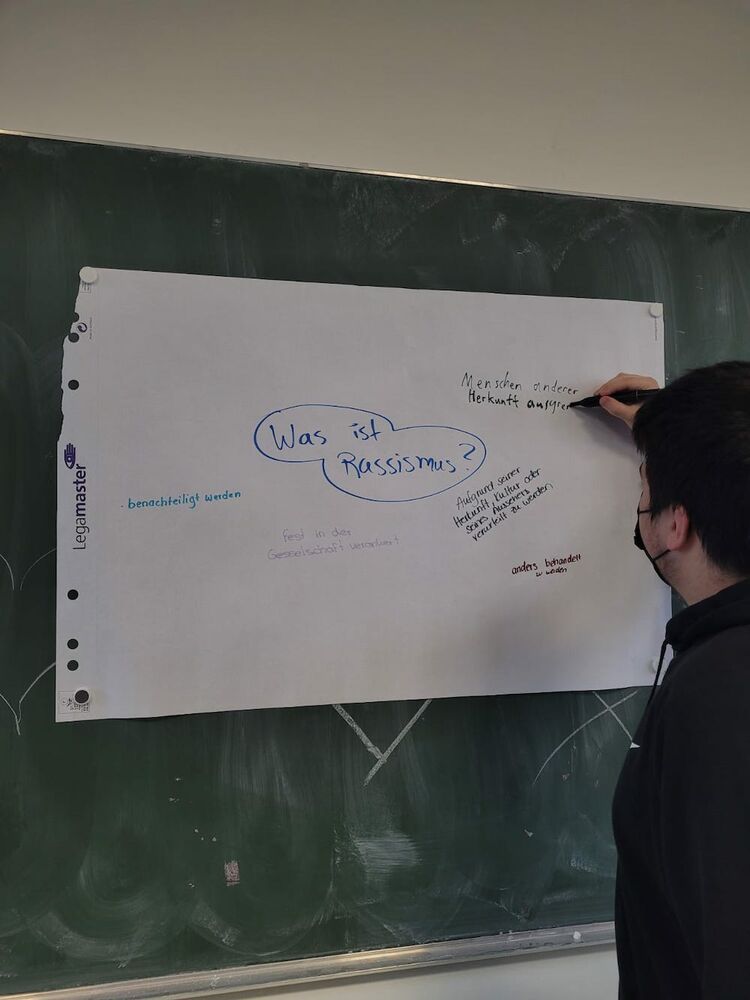 Menschen anderer
Herkunft ausgren
Was ist
Rassismus?
Aufgrund seiner
Herkunft Kultur oder
seines Aussehens
verurteilt zu werden
· benachteiligt werden
fest in der
Gesselschaft verankert
anders behandelt
zu werden
Legamaster